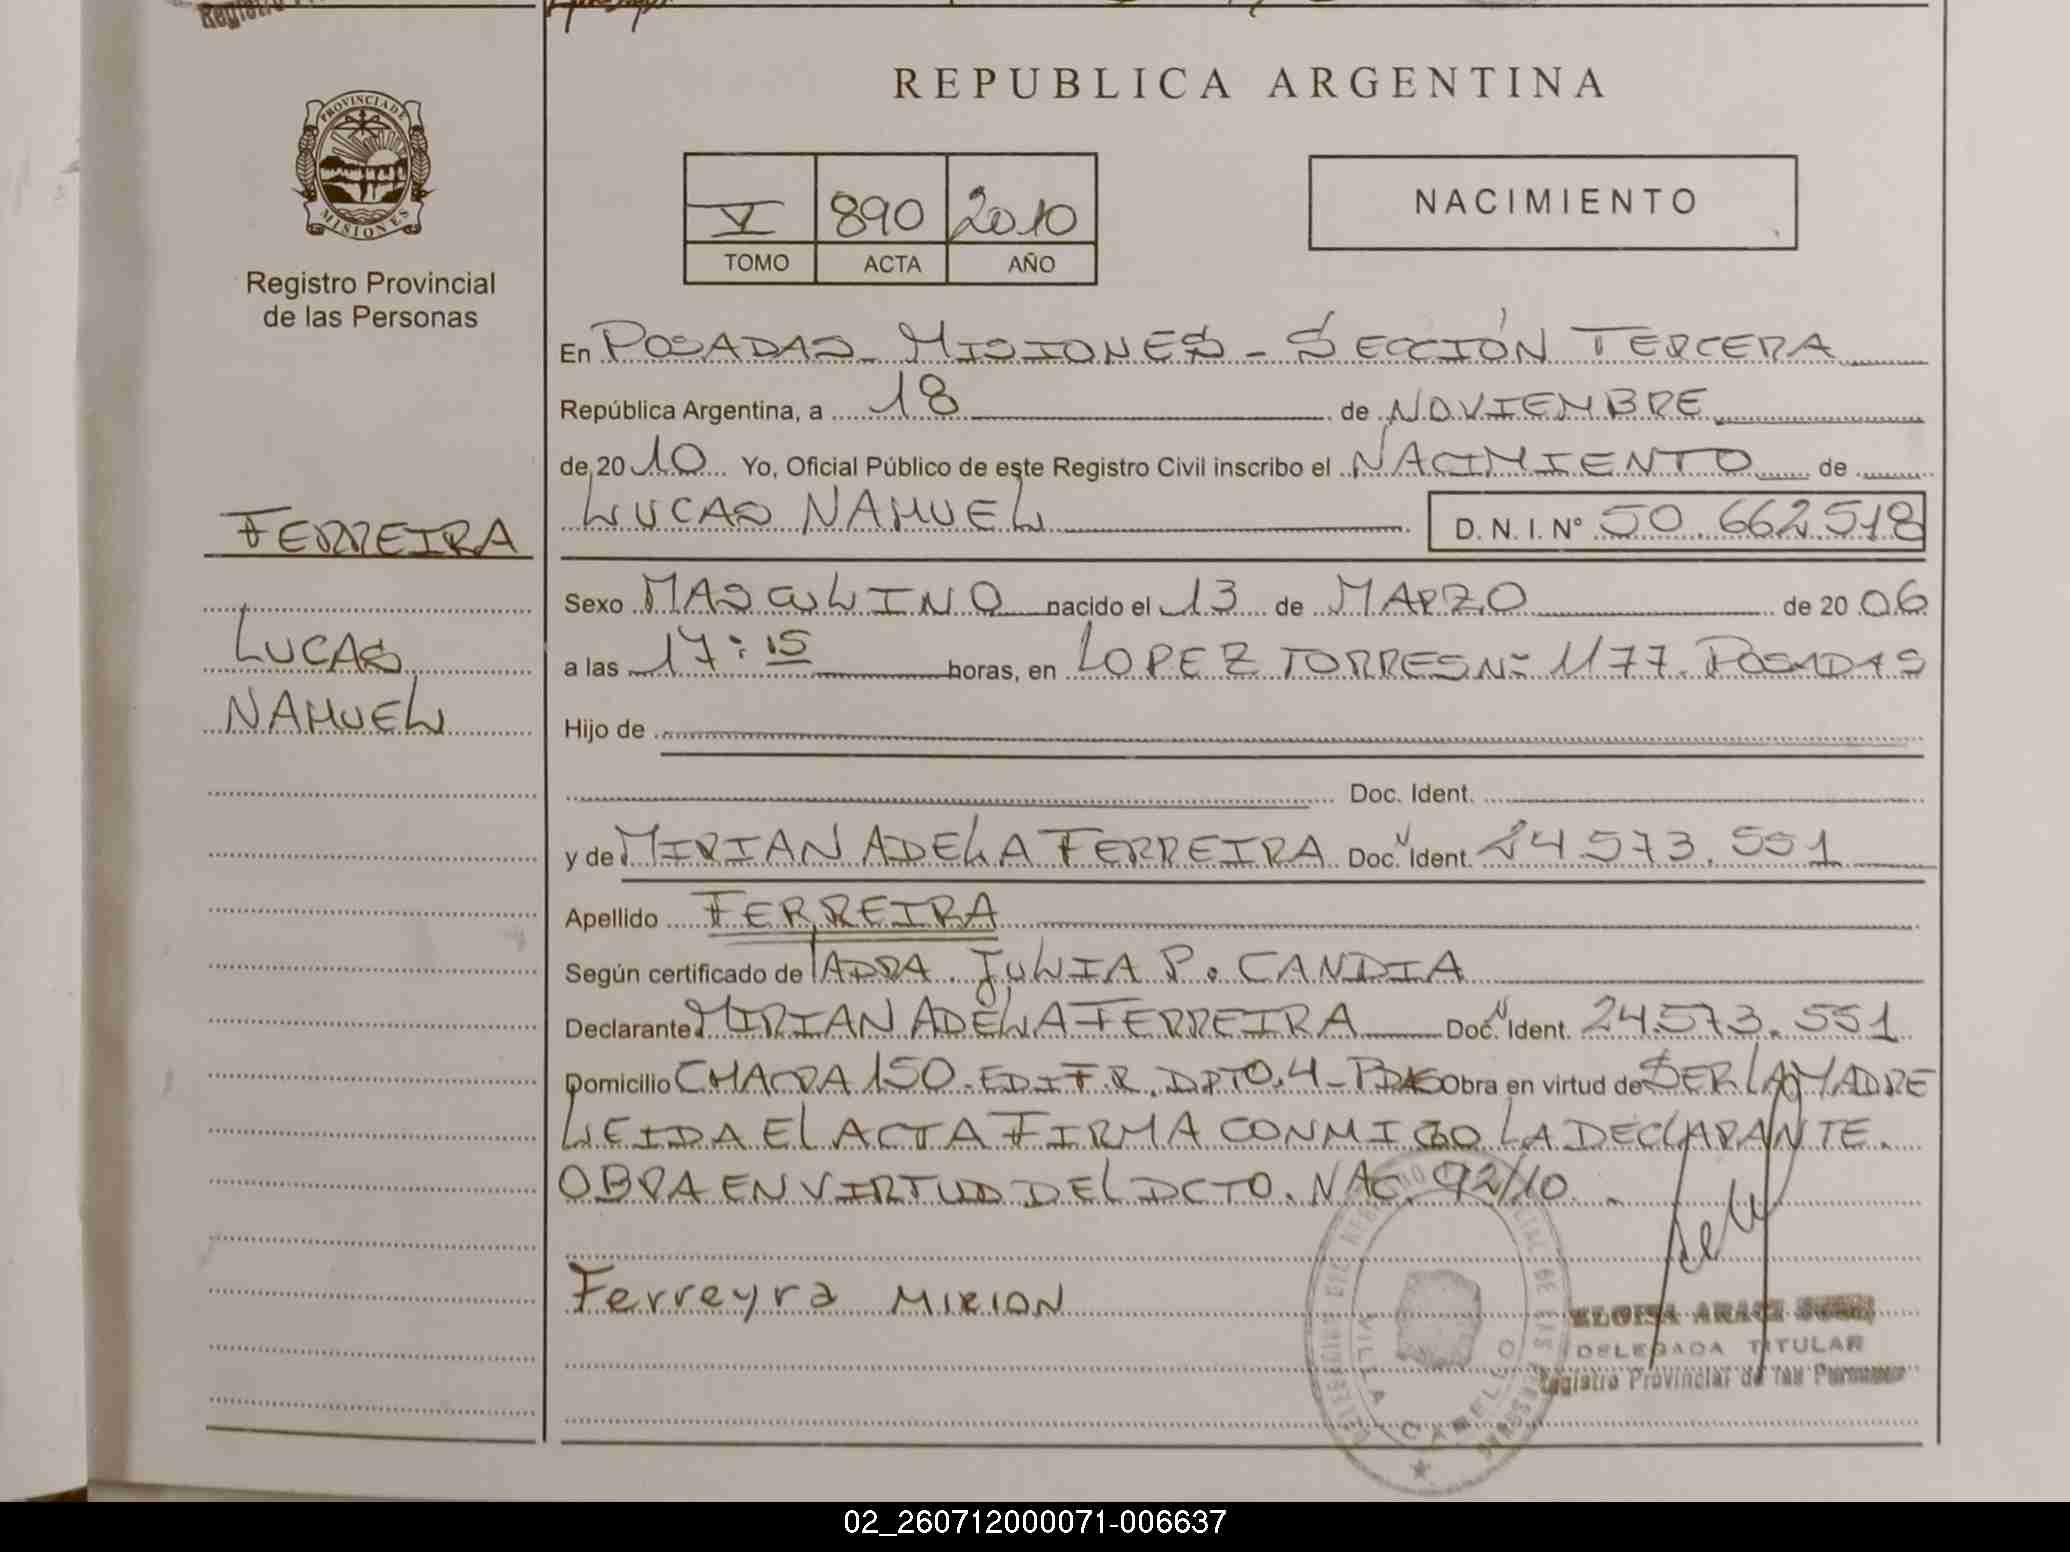 REPUBLICA ARGENTINA
PROVINCIA DE
MISIONES
Registro Provincial
de las Personas
V 890 2010
TOMO ACTA AÑO
NACIMIENTO
En POSADAS - MISIONES - SECCIÓN TERCERA
República Argentina, a 18 de NOVIEMBRE
de 20 10 Yo, Oficial Público de este Registro Civil inscribo el NACIMIENTO de
LUCAS NAHUEL D. N. I. Nº 50.662.518
FERREIRA
LUCAS
NAHUEL
Sexo MASCULINO nacido el 13 de MARZO de 20 06
a las 17:15 horas, en LOPEZ TORRES Nº 1177. POSADAS
Hijo de
Doc. Ident.
y de MIRIAN ADELA FERREIRA Doc. Ident. 24.573.551
Apellido FERREIRA
Según certificado de LA DRA. JULIA P. CANDIA
Declarante MIRIAN ADELA FERREIRA Doc. Ident. 24.573.551
Domicilio CHACRA 150. EDIF R. DPTO. 4 - PDAS Obra en virtud de SER LA MADRE
LEIDA EL ACTA FIRMA CONMIGO LA DECLARANTE.
OBRA EN VIRTUD DEL DCTO. NAC. 92/10
Ferreyra MIRIAN
ELOISA ARACI
DELEGADA TITULAR
Registro Provincial de las Personas
VILLA CABELLO
02_260712000071-006637